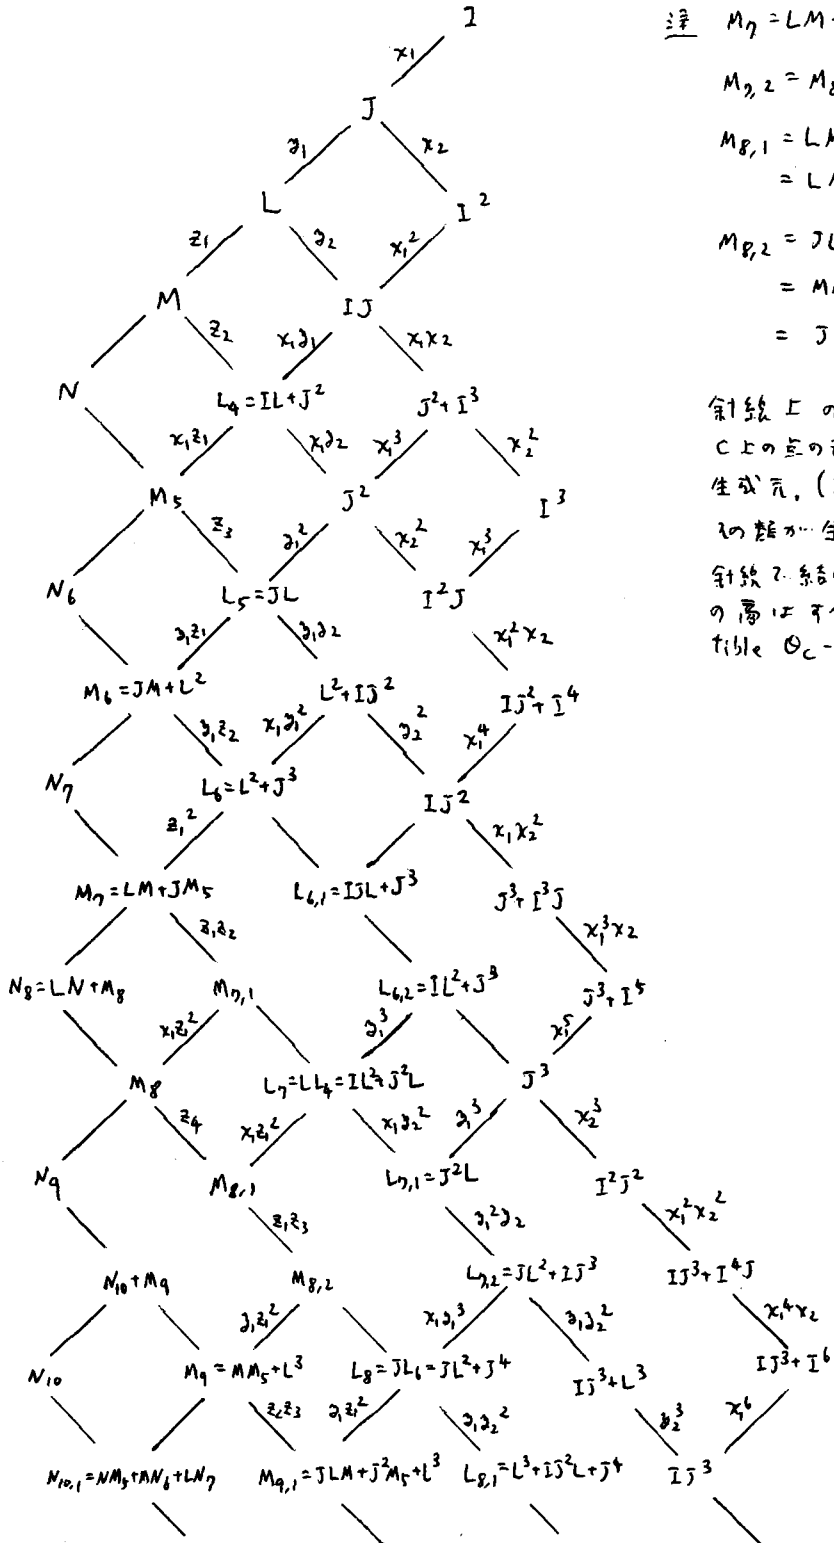 I
x₁
J
y₁ x₂
L I²
z₁ y₂ x₁²
M IJ
z₂ x₁y₁ x₁x₂
N L₄=IL+J² J²+I³
x₁z₁ x₁y₂ x₁³ x₂²
M₅ J² I³
z₃ y₁² x₂² x₁³
N₆ L₅=JL I²J
y₁z₁ y₁y₂ x₁²x₂
M₆=JM+L² L²+IJ² IJ²+I⁴
y₁z₂ x₁y₁² y₂² x₁⁴
N₇ L₆=L²+J³ IJ²
z₁² x₁x₂²
M₇=LM+JM₅ L₆,₁=IJL+J³ J³+I³J
z₁z₂ x₁³x₂
N₈=LN+M₈ M₇,₁ L₆,₂=IL²+J³ J³+I⁵
x₁z₁² y₁³ x₁⁵
M₈ L₇=LL₄=IL²+J²L J³
z₄ x₁z₁² x₁y₂² y₁³ x₂³
N₉ M₈,₁ L₇,₁=J²L I²J²
z₁z₃ y₁²y₂ x₁²x₂²
N₁₀+M₉ M₈,₂ L₇,₂=JL²+IJ³ IJ³+I⁴J
y₁z₁² x₁y₁³ y₁y₂² x₁⁴x₂
N₁₀ M₉=MM₅+L³ L₈=JL₆=JL²+J⁴ IJ³+L³ IJ³+I⁶
z₂z₃ y₁z₁² y₁y₂² y₂³ x₁⁶
N₁₀,₁=NM₅+MN₆+LN₇ M₉,₁=JLM+J²M₅+L³ L₈,₁=L³+IJ²L+J⁴ IJ³
注 M₇=LM
M₇,₂=M₈
M₈,₁=LM
=LM
M₈,₂=JL
=M
=J
斜線上の
C上の点の
生成元. (
その類が
斜線で結
の商はすべ
tible 𝒪_C-